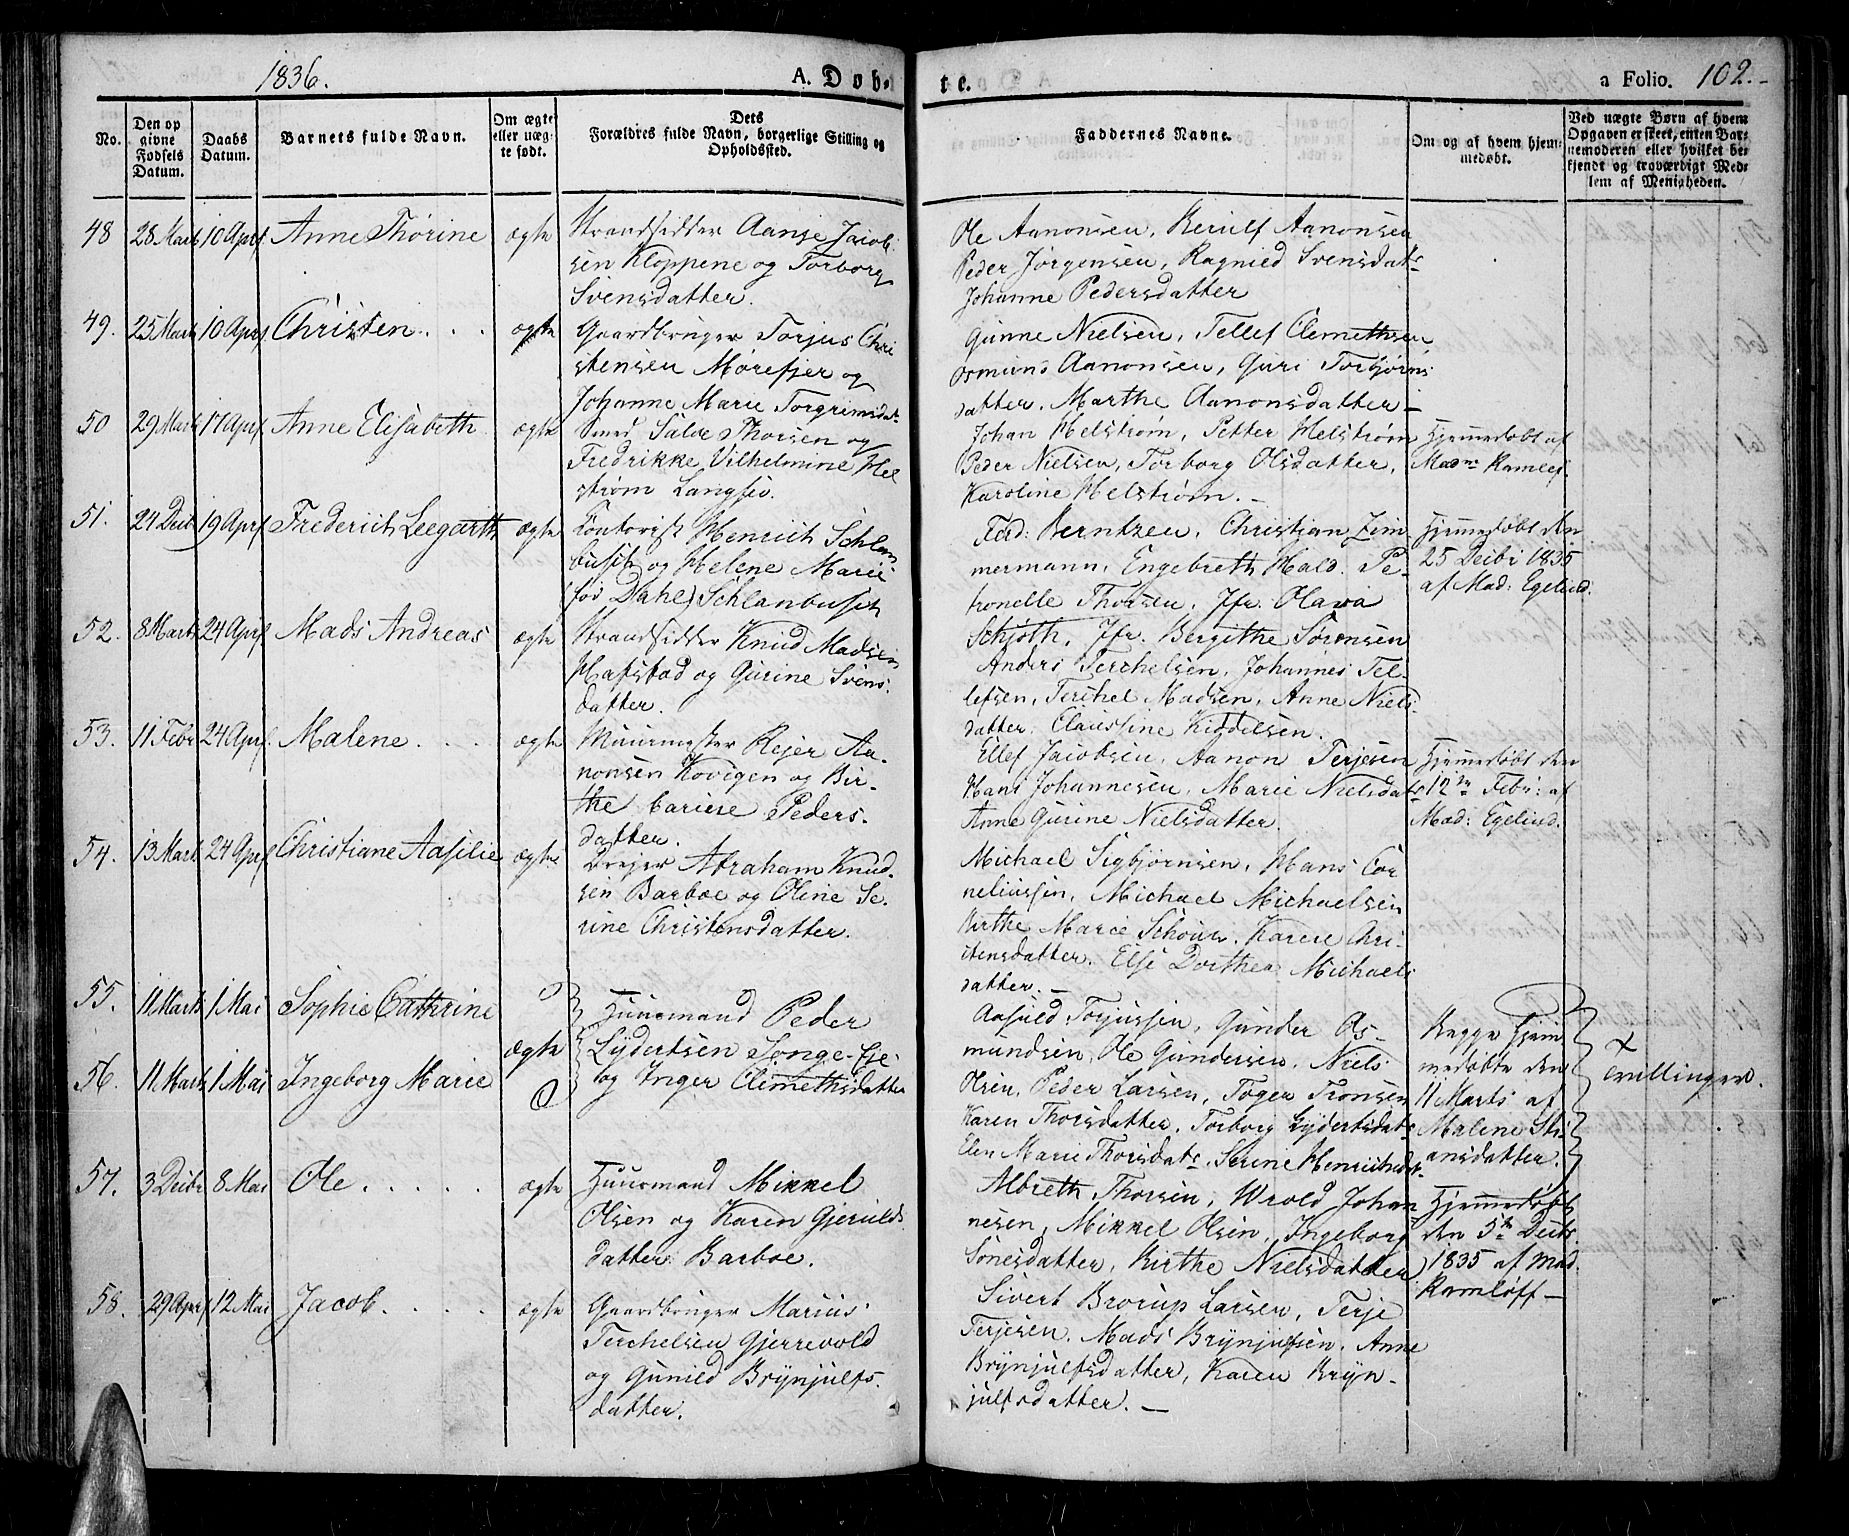 1836.
A. Døb-
te.
a Folio. 102.
No.
Den op
givne
Fødsels
Datum.
Daabs
Datum.
Barnets fulde Navn.
Om ægte
eller uæg-
te født.
Dets
Forældres fulde Navn, borgerlige Stilling og
Opholdssted.
Faddernes Navne.
Om og af hvem hjem-
medøbt.
Ved uægte Børn af hvem
Opgaven er skeet, enten Bar-
nemoderen eller hvilket be-
kjendt og troværdigt Med-
lem af Menigheden.
48 28 Marts 10 Apr. Anne Thorine ægte Strandsidder Aanse Jacob-
sen Kloppene og Torborg
Svensdatter.
Ole Aanonsen, Berulf Aanonsen
Peder Jörgensen, Ragnild Svensdatr
Johanne Pedersdatter
49. 25 Marts 10 Apr. Christen ægte Gaardbruger Torjus Chri
stensen Mörefjer og
Johanne Marie Torgrimsdat.
Gunne Nielsen, Tellef Clemethsen,
Osmund Aanonsen, Guri Torbjörns-
datter. Marthe Aanonsdatter—
50 29 Marts 17 Apr. Anne Elisabeth ægte Smed Salve Thorsen og
Fredrikke Vilhelmine Hel
ström Langsev.
Johan Helström, Petter Helström
Peder Nielsen, Torborg Olsdatter,
Karoline Helström.—
Hjemmedöbt af
Madm Ramlef.
51. 24 Decbr 19 Apr. Frederich Leegarth ægte Contorist Henrich Schlan
busch og Helene Marie
för Dahl Schlanbusch
Ferd: Berntzen, Christjan Zim
mermann, Engebreth Hald. Pe-
tronelle Thorsen, Jfr. Olava
Schjöth, Jfr. Bergithe Sörensen
Hjemmedöbt den
25 Decbr 1835
af Mad: Egelund.
52. 8 Marts 24 Apr. Mads Andreas ægte Strandsidder Knud Madsen
Hafstad og Gurine Svens-
datter.
Anders Terchelsen, Johannes Tel-
lefsen, Terchel Madsen, Anne Niels-
datter. Claussine Kiddelsen.
53. 11 Febr 24 Apr. Malene ægte Muurmester Rejer Aa-
nonsen Kovigen og Bir-
the Cariese Peders-
datter.
Ellef Jacobsen, Aanon Terjesen
Hans Johannesen, Marie Nielsdatr
Anne Gurine Nielsdatter.
Hjemmedöbt den
12te Febr: af
Mad: Egelund.
54. 13 Marts 24 Apr. Christiane Aasilie ægte Drejer Abraham Knud-
sen Barboe og Oline Se-
rine Christensdatter.
Michael Sigbjörnsen, Hans Cor
neliussen, Michael Michaelsen
Birthe Marie Schöuen. Karen Chri-
stensdatter. Else Dorthea Michaels
datter.—
55. 11 Marts 1 Mai Sophie Cathrine
56. 11 Marts 1 Mai Ingeborg Marie
ægte
Huusmand Peder
Lydertsen Songe-Eje
og Inger Clemethsdatter
Aasuld Torjussen, Gunder Os-
mundsen, Ole Gundersen, Niels
Olsen, Peder Larsen, Toger Tronsen
Karen Thorsdatter. Torborg Lydertsdatr
Elen Marie Thorsdatr. Serine Henrichsdatr
Begge Hjem
medöbte den
11 Marts af
Malene Sti-
ansdatter.
Tvillinger.
57. 3 Decbr 8 Mai Ole ægte Huusmand Mikkel
Olsen og Karen Gjerulds
datter Barboe.
Albreth Thorsen, Wrold Johan
nesen, Mikkel Olsen, Ingeborg
Sönesdatter, Birthe Nielsdatter,
Hjemmedöbt
den 5te Decbr.
1835 af Mad.
Ramlöff—
58. 29 Apr. 12 Mai Jacob ægte Gaardbruger Marius
Terchelsen Gjerrevold
og Gunild Brynjulfs-
datter.
Sivert Brorup Larsen, Terje
Terjesen. Mads Brynjulfsen, Anne
Brynjulfsdatter, Karen Bryn-
julfsdatter.—